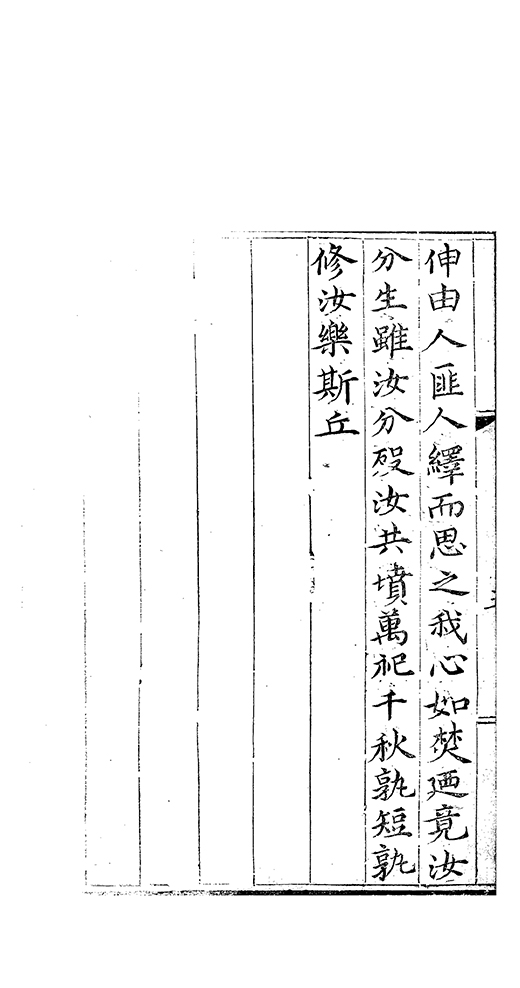 伸由人匪人繹而思之我心如焚廼竟汝
分生雖汝分歿汝共墳萬祀千秋孰短孰
修汝樂斯丘